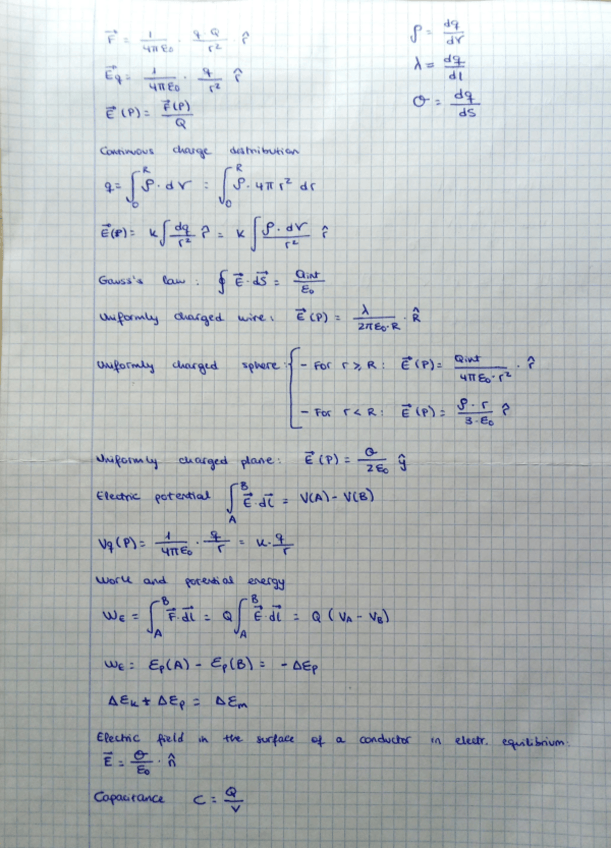 F⃗ = 1/(4πε₀) · (q·Q)/r² r̂
E⃗q = 1/(4πε₀) · q/r² r̂
E⃗(P) = F⃗(P)/Q
ρ = dq/dV
λ = dq/dl
σ = dq/dS
Continuous charge distribution
q = ∫₀ᴿ ρ · dV = ∫₀ᴿ ρ · 4π r² dr
E⃗(P) = K ∫ dq/r² r̂ = K ∫ (ρ · dV)/r² r̂
Gauss's law : ∮ E⃗ · dS⃗ = Qint/ε₀
Uniformly charged wire: E⃗(P) = λ/(2πε₀·R) · R̂
Uniformly charged sphere: { - For r ⩾ R : E⃗(P) = Qint/(4πε₀·r²) · r̂
- For r < R : E⃗(P) = (ρ · r)/(3·ε₀) r̂
Uniformly charged plane: E⃗(P) = σ/(2ε₀) ŷ
Electric potential ∫_A^B E⃗ · dl⃗ = V(A) - V(B)
Vq(P) = 1/(4πε₀) · q/r = K · q/r
Work and potential energy
WE = ∫_A^B F⃗ · dl⃗ = Q ∫_A^B E⃗ · dl⃗ = Q (VA - VB)
WE = Ep(A) - Ep(B) = - ΔEp
ΔEk + ΔEp = ΔEm
Electric field in the surface of a conductor in electr. equilibrium:
E⃗ = σ/ε₀ · n̂
Capacitance C = Q/V